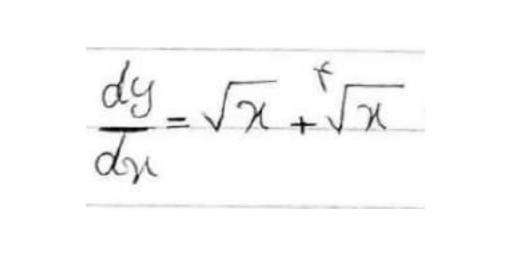 dy/dx = √x + ۴√x